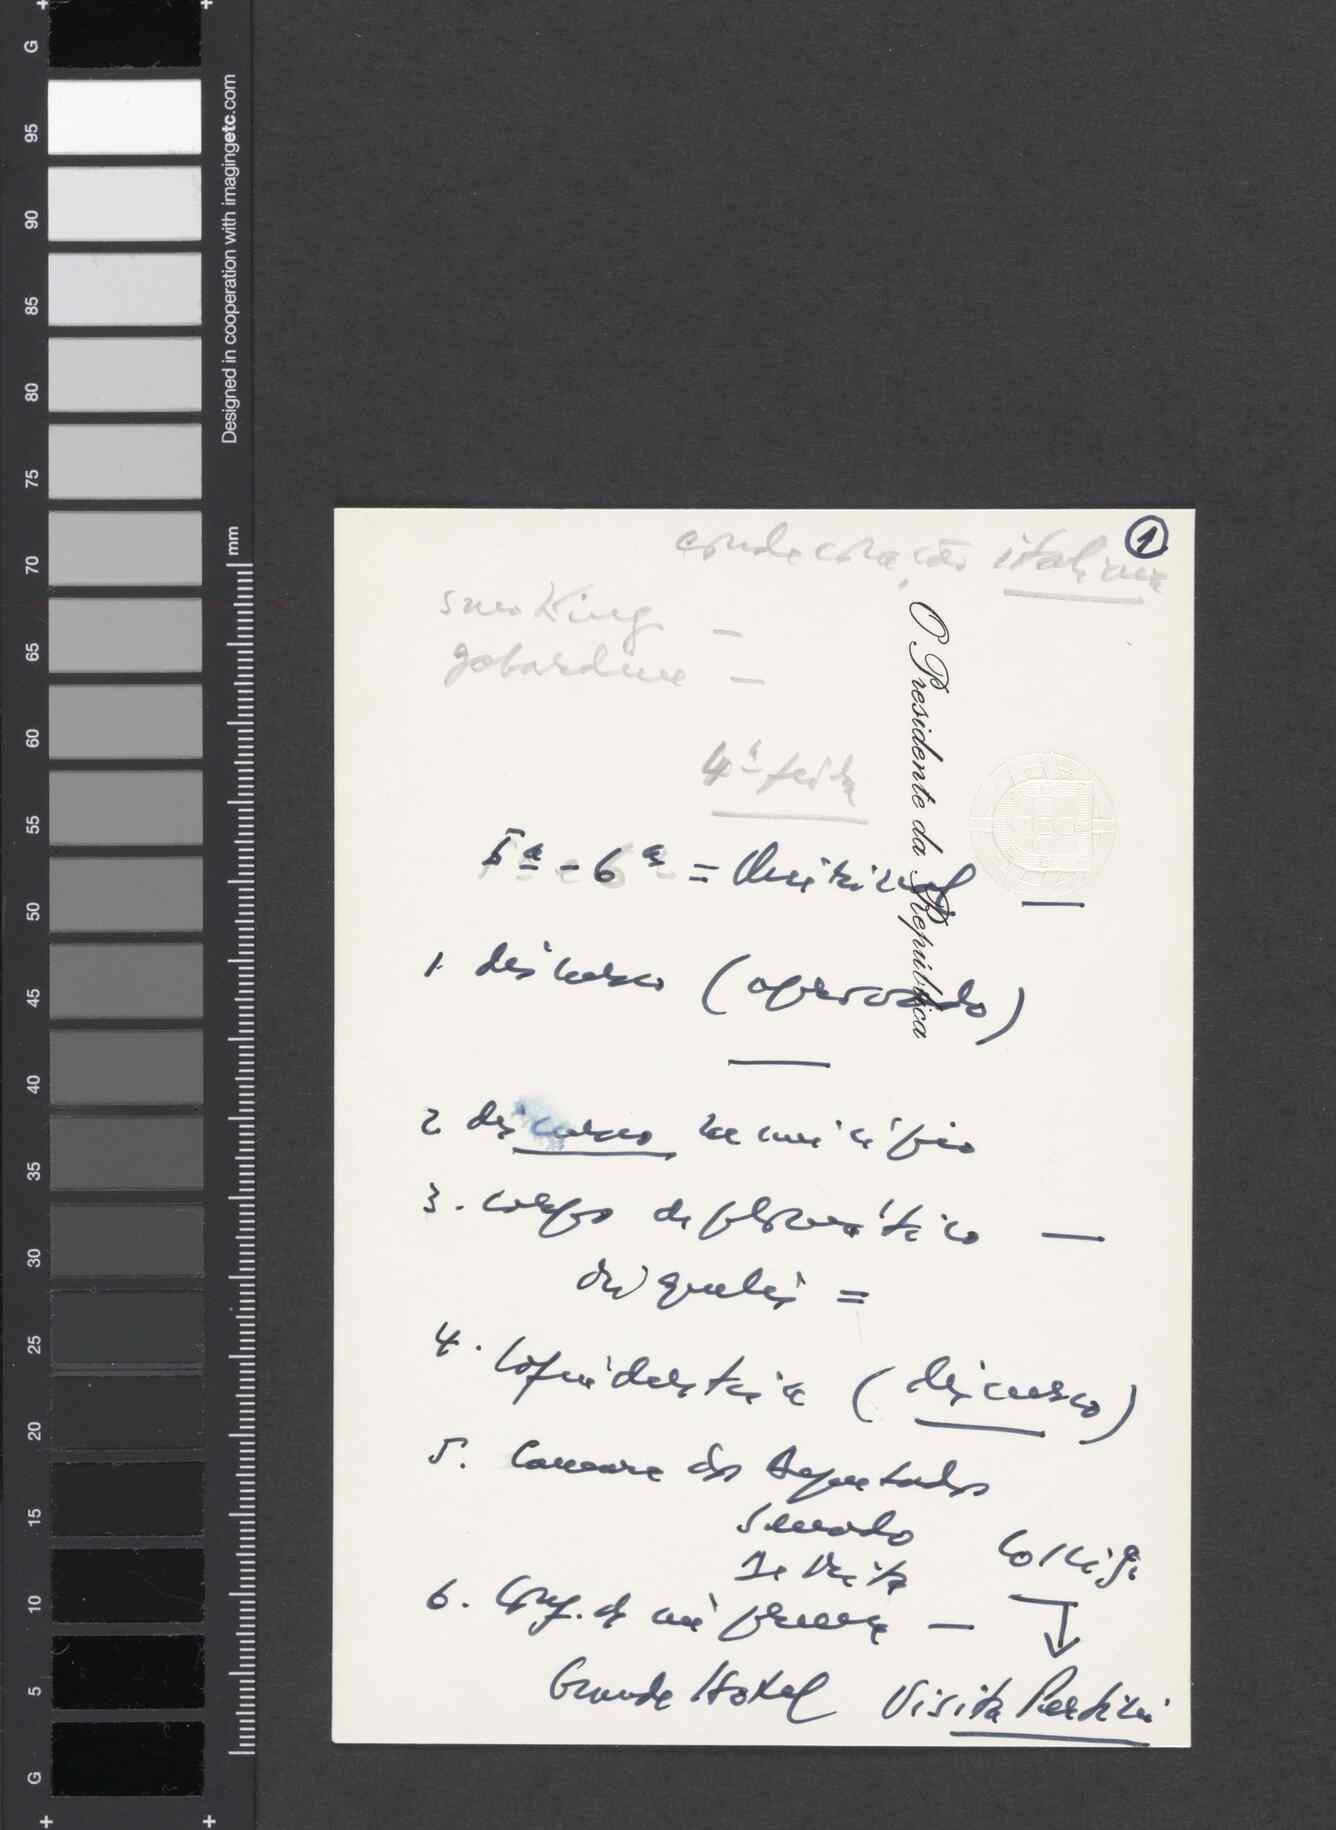 ①
condecoração italiana
smoking —
gabardine —
O Presidente da República
4ª feira
5ª - 6ª = Quirinal —
1. discurso (aprovado)
2 discurso município
3. corpo diplomático —
4. Cofindustria (discurso)
5. Camara dos Deputados
Senado
6. Conf. de imprensa —
Grande Hotel Visita Pertini
G
95
90
85
80
75
70
65
60
55
50
45
40
35
30
25
20
15
10
5
G
Designed in cooperation with imagingetc.com
mm